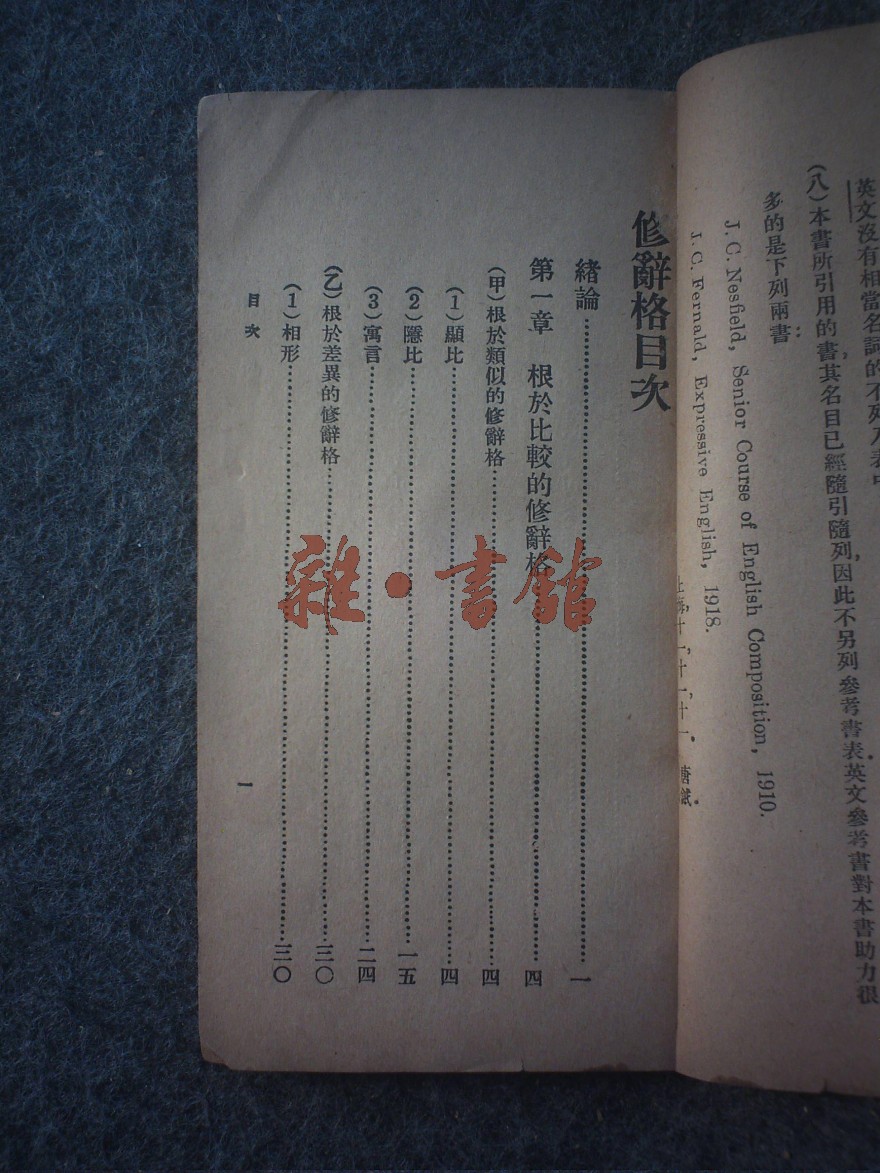 英文沒有相當名詞的不列入表中
(八)本書所引用的書,其名目已經隨引隨列,因此不另列參考書表.英文參考書對本書助力很
多的是下列兩書:
J. C. Nesfield, Senior Course of English Composition, 1910.
J. C. Fernald, Expressive English, 1918.
上海,十一,十一,十一. 唐鉞.
修辭格目次
緒論……一
第一章 根於比較的修辭格……四
(甲)根於類似的修辭格……四
(1)顯比……四
(2)隱比……一五
(3)寓言……二四
(乙)根於差異的修辭格……三〇
(1)相形……三〇
目次
一
雜·書館